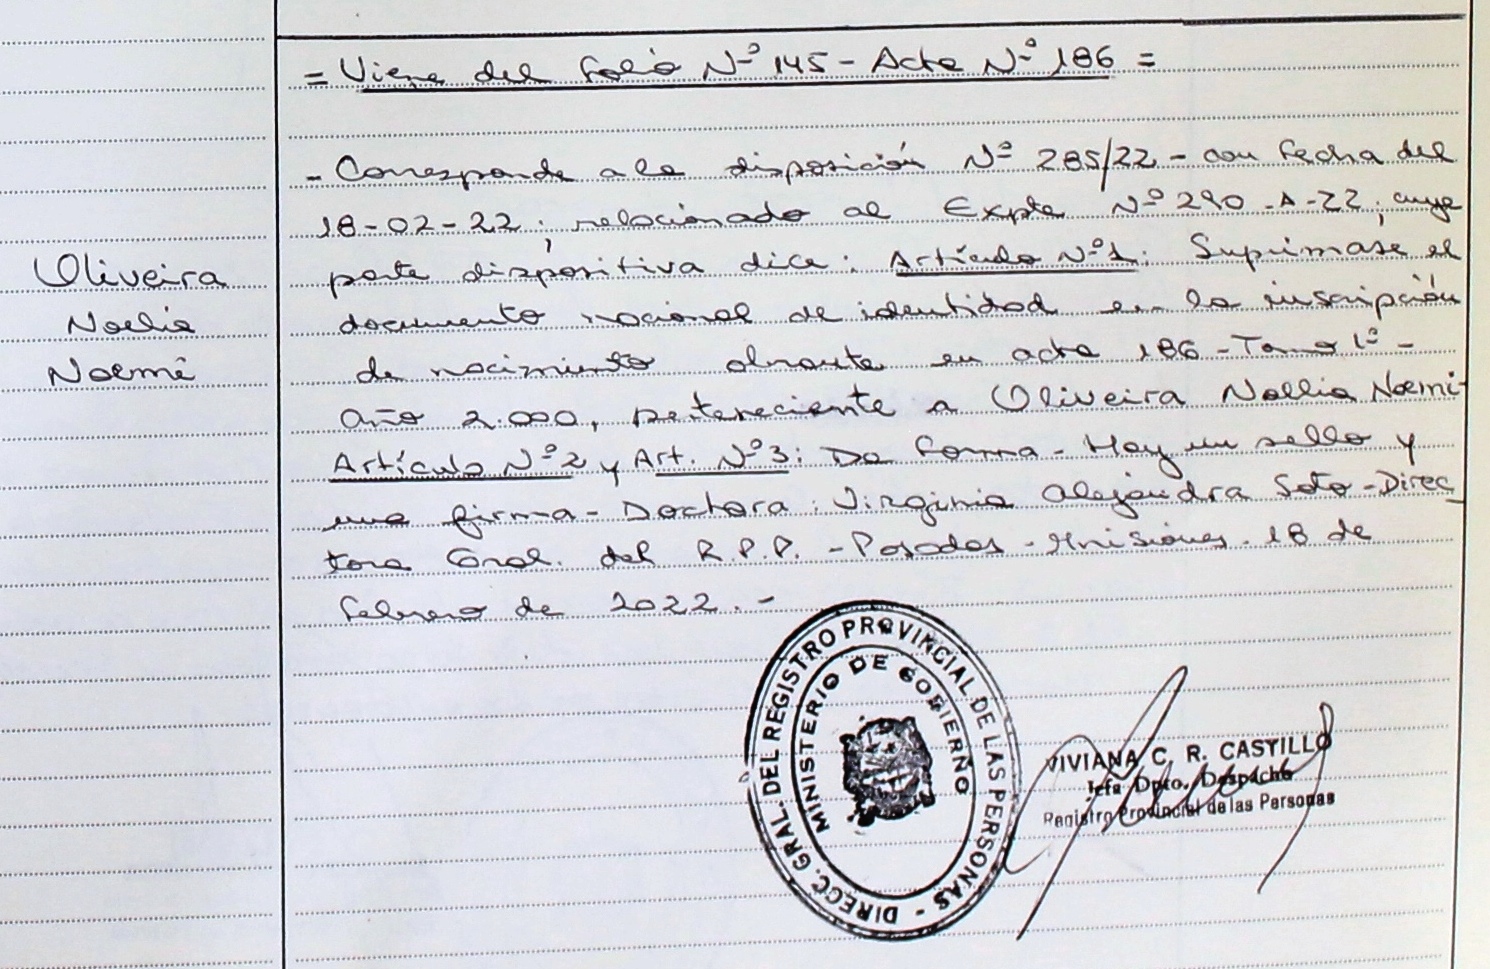 = Viene del folio Nº 145 - Acta Nº 186 =
- Corresponde a la disposición Nº 285/22 - con fecha del
18-02-22; relacionado al Expte Nº 290-A-22; cuya
Oliveira
Noelia
Noemí
parte dispositiva dice: Artículo Nº1: Suprímase el
documento nacional de identidad en la inscripción
de nacimiento obrante en acta 186 - Tomo 1º -
Año 2.000, perteneciente a Oliveira Noelia Noemí-
Artículo Nº2 y Art. Nº3: De forma - Hay un sello y
una firma - Doctora: Virginia Alejandra Soto - Direc-
tora Gral. del R.P.P. - Posadas - Misiones. 18 de
febrero de 2022.-
DIRECC. GRAL. DEL REGISTRO PROVINCIAL DE LAS PERSONAS -
MINISTERIO DE GOBIERNO
VIVIANA C. R. CASTILLO
Jefa Dpto. Despacho
Registro Provincial de las Personas